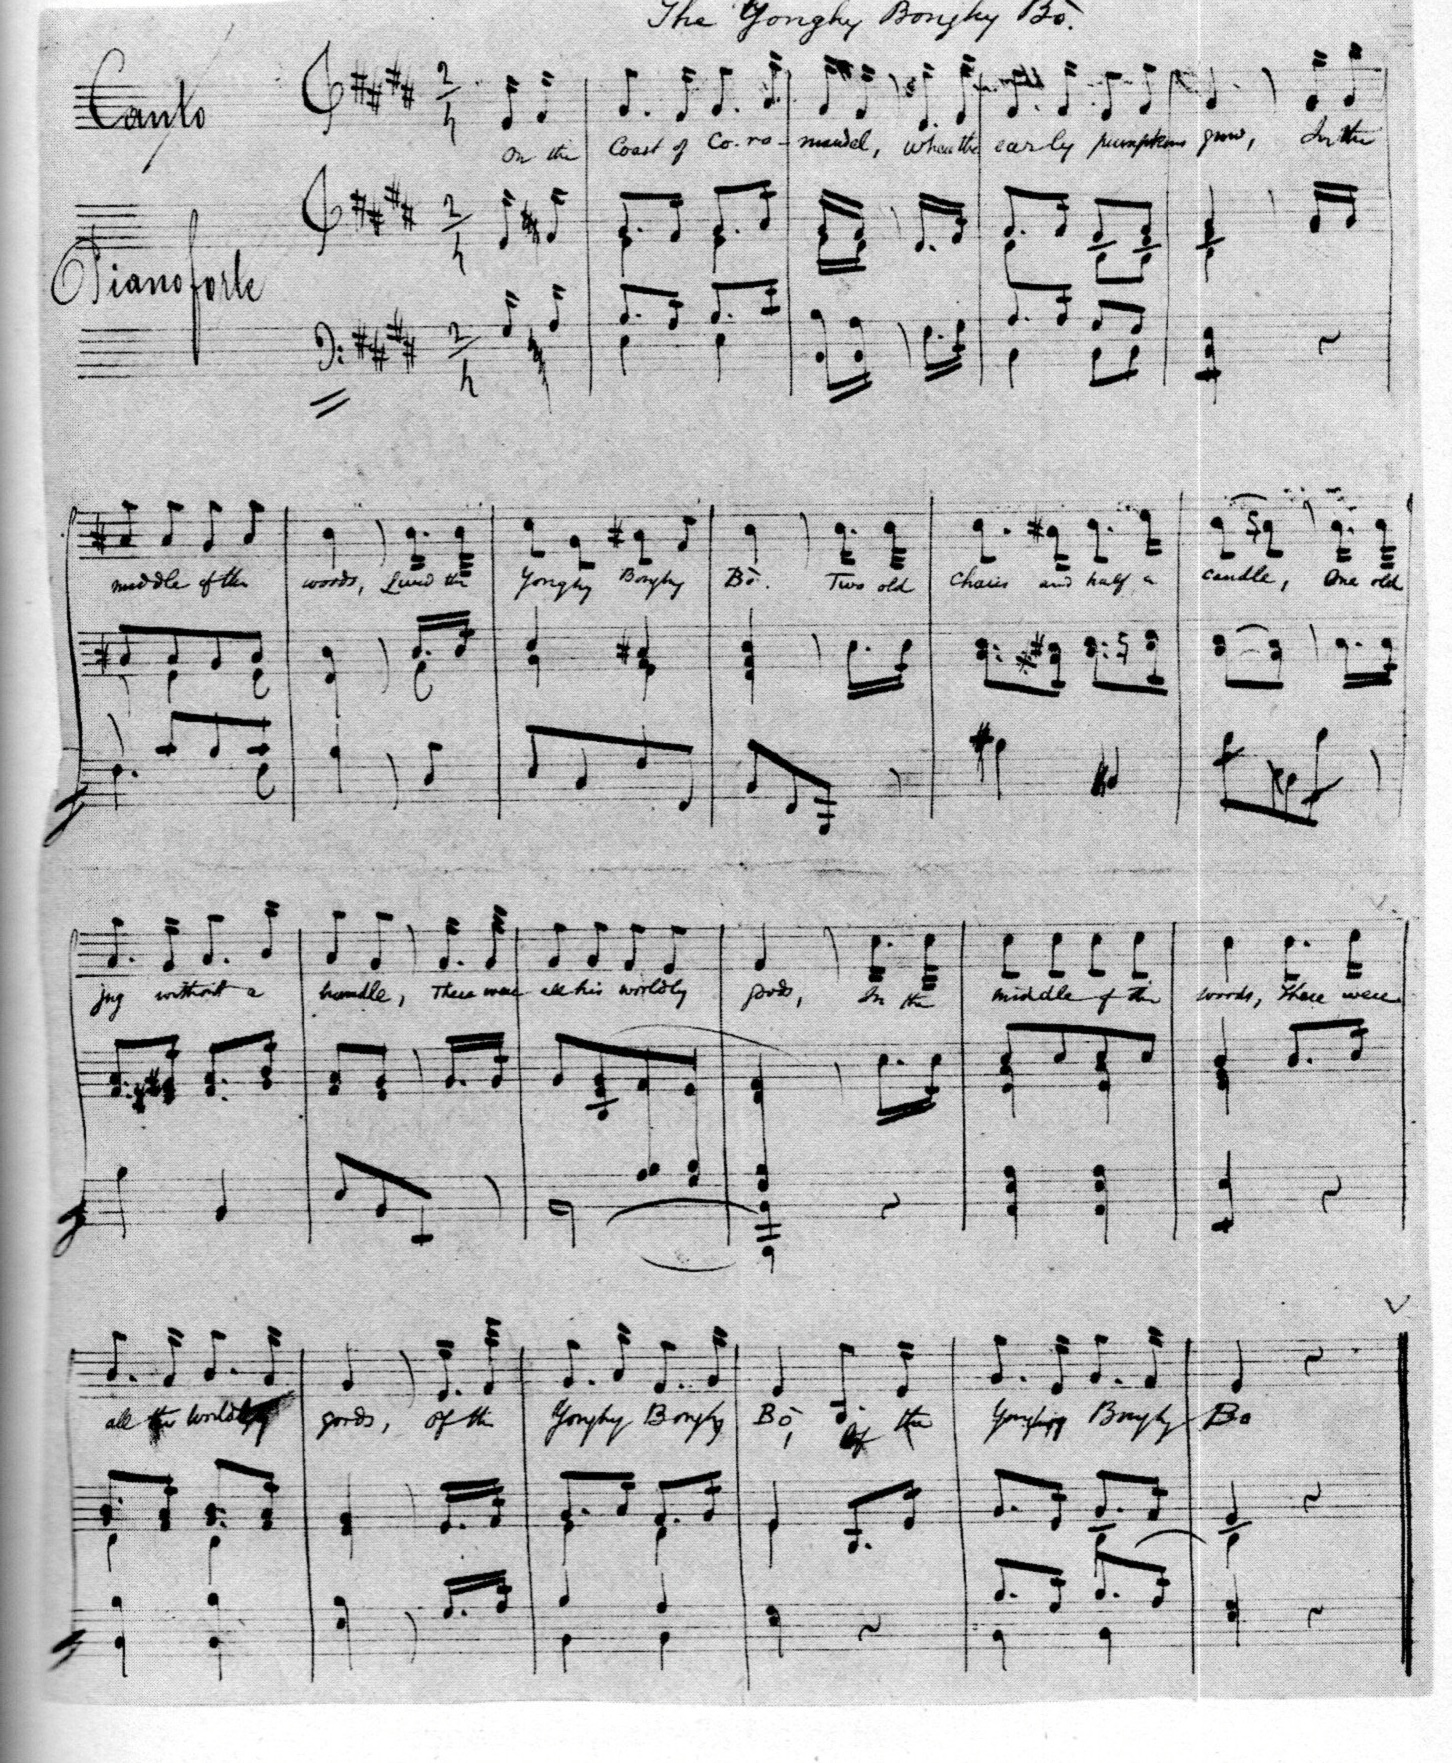 The Yonghy Bonghy Bò.
Canto
On the Coast of Co-ro-mandel, where the early pumpkins grow, In the
Pianoforte
middle of the woods, Lived the Yonghy Bonghy Bò. Two old Chairs and half a candle, One old
jug without a handle, These were all his worldly goods, In the middle of the woods, These were
all the worldly goods, of the Yonghy Bonghy Bò, Of the Yonghy Bonghy Bo